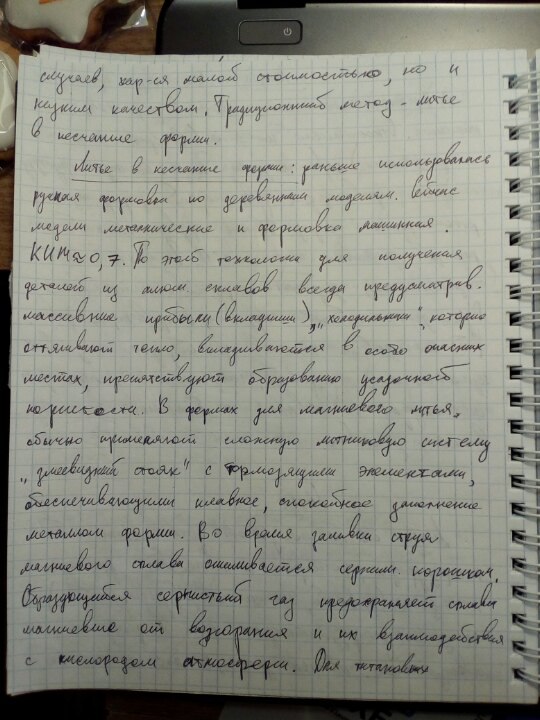 случаев, хар-ся малой стоимостью, но и
низким качеством. Традиционный метод - литье
в песчаные формы.
Литье в песчаные формы: раньше использовалась
ручная формовка по деревянным моделям. Сейчас
модели металлические и формовка машинная.
КИМ≈0,7. По этой технологии для получения
деталей из алюм. сплавов всегда предусматрив.
массивные прибыли (вкладыши) „холодильники", которые
оттягивают тепло, вкладываются в особо опасных
местах, препятствуют образованию усадочной
пористости. В формах для магниевого литья,
обычно применяют сложную литниковую систему
„змеевидный стояк" с тормозящими элементами,
обеспечивающими плавное, спокойное заполнение
металлом формы. Во время заливки струя
магниевого сплава опыливается серным порошком.
Образующийся сернистый газ предохраняет сплавы
магниевые от возгорания и их взаимодействия
с кислородом атмосферы. Для титановых